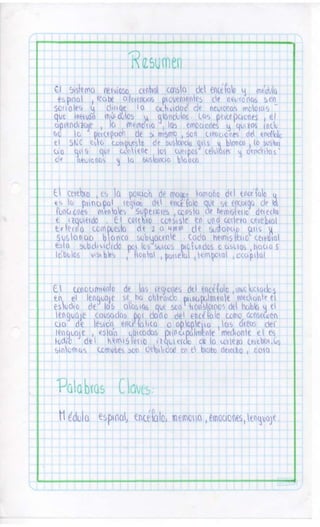 Resumen
El sistema nervioso central consta del encéfalo y médula
espinal, recibe aferencias provenientes de neuronas sen
soriales y dirige la actividad de neuronas motoras
que inervan músculos y glándulas Las percepciones, el
aprendizaje, la memoria, las emociones y quizás inclu
so la percepción de si mismo, son funciones del encéfalo
el SNC esta compuesto de sustancia gris y blanca, la sustan
cia gris que contiene los cuerpos celulares y dendritas
de neuronas y la sustancia blanca
El cerebro, es la porción de mayor tamaño del encéfalo y
es la principal región del encéfalo que se encarga de la
funciones mentales superiores, consta de hemisferio derecho
e izquierdo. El cerebro consiste en una corteza cerebral
externa compuesta de 2 a 4 mm de sustancia gris y
sustancia blanca subyacente. Cada hemisferio cerebral
esta subdividido por los surcos profundos o cisuras, hacia 5
lóbulos visibles, frontal, parietal, temporal, occipital
El conocimiento de las regiones del encéfalo involucradas
en el lenguaje se ha obtenido principalmente mediante el
estudio de las afasias que son trastornos del habla y el
lenguaje causados por daño del encéfalo como consecuen
cia de lesión encefálica o apoplejía, las áreas del
lenguaje, están ubicadas principalmente mediante el es
tudio del hemisferio izquierdo de la corteza cerebral, los
síntomas comunes son debilidad en el brazo derecho, cara
Palabras Claves:
Médula espinal, encéfalo, memoria, emociones, lenguaje.